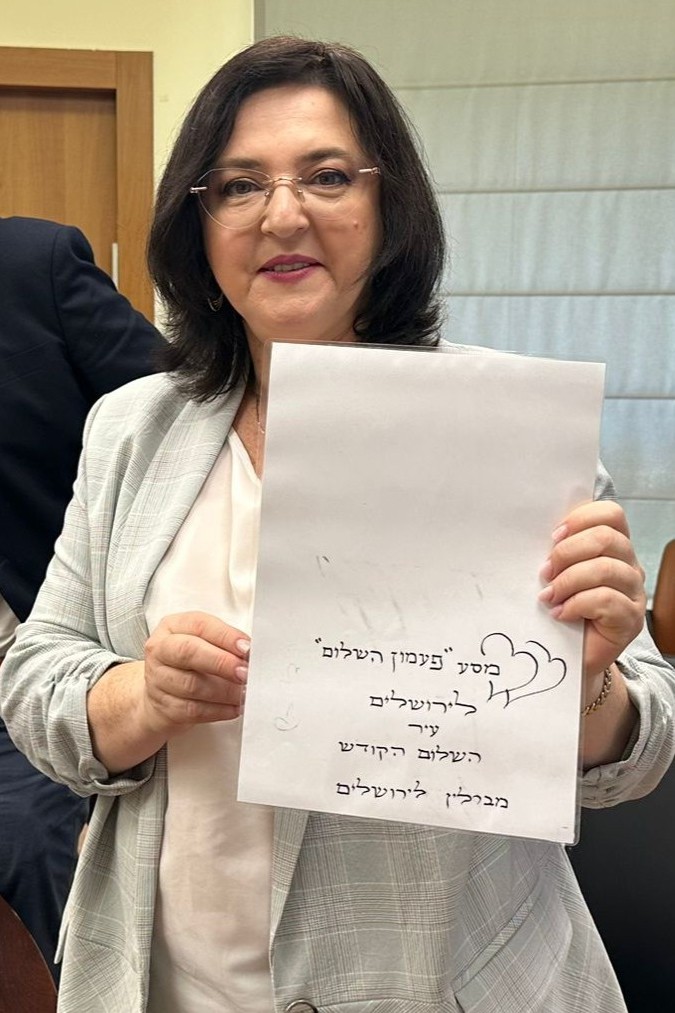 מסע "פעמון השלום"
לירושלים
עיר
השלום הקודש
מברלין לירושלים